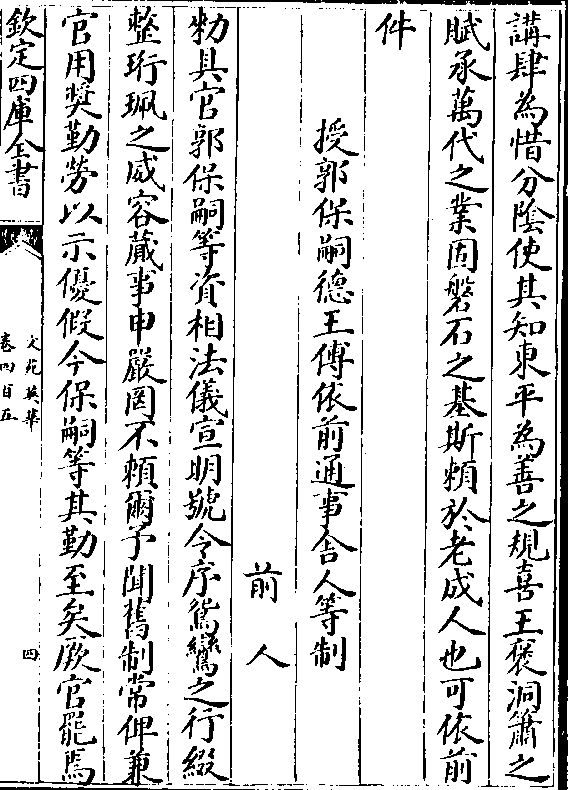 講肆為惜分陰使其知東平為善之規喜王褒洞簫之
賦承萬代之業固磐石之基斯頼於老成人也可依前
件
授郭保嗣德王傅依前通事舍人等制
前人
勑具官郭保嗣等資相法儀宣明號令序鴛鸞之行綴
整珩珮之威容蕆事申嚴罔不頼爾予聞舊制常俾兼
官用奨勤勞以示優假今保嗣等其勤至矣厥官罷焉
欽定四庫全書
文苑英華
卷四百五
四